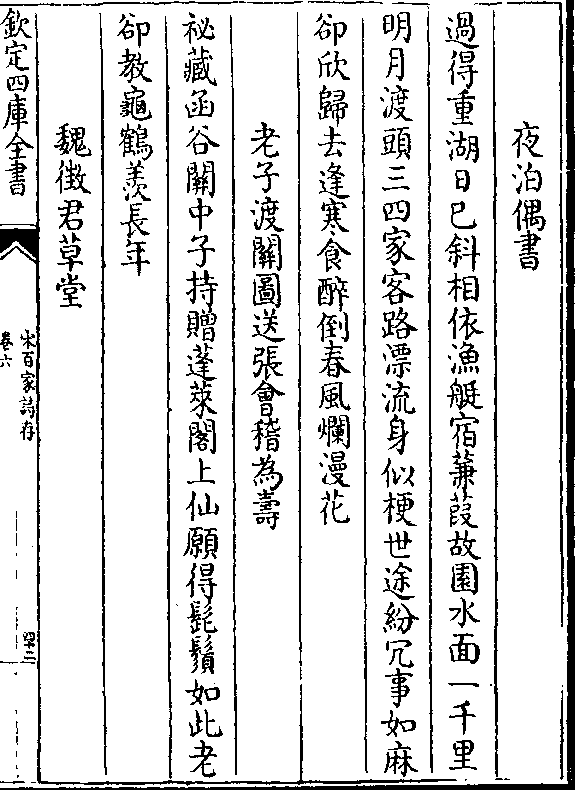 夜泊偶書
過得重湖日已斜相依漁艇宿蒹葭故園水面一千里
明月渡頭三四家客路漂流身似梗世途紛冗事如麻
卻欣歸去逢寒食醉倒春風爛漫花
老子渡關圖送張會稽為壽
祕藏函谷關中子持贈蓬萊閣上仙願得髭鬚如此老
卻教龜鶴羨長年
魏徴君草堂
欽定四庫全書
宋百家詩存
卷六